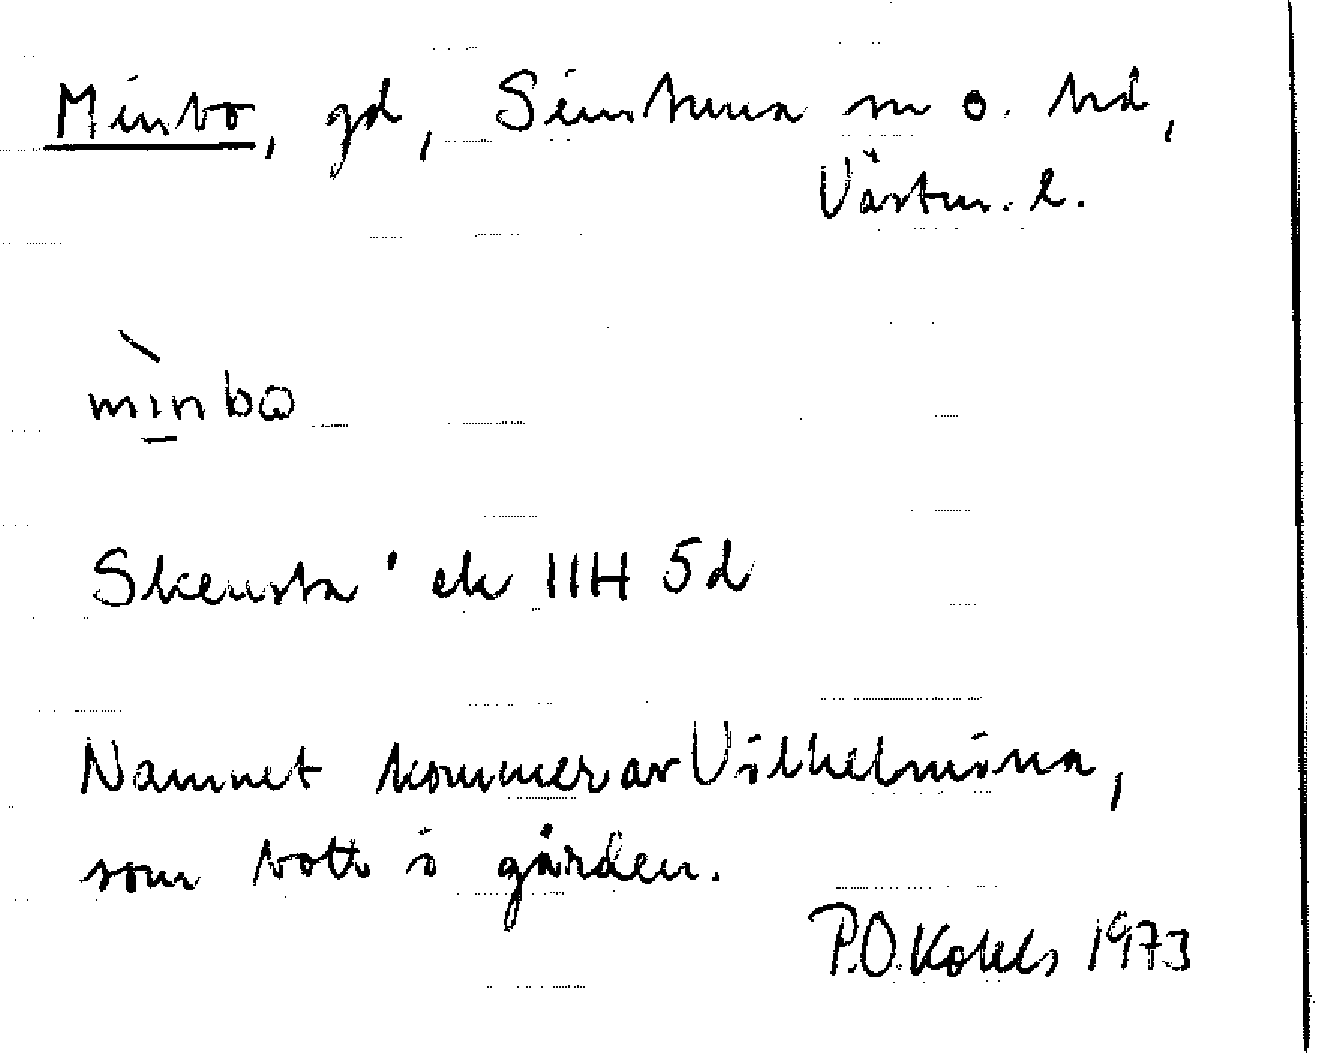 Minbo, gd, Simtuna sn o. hd,
Västm. l.
mìnbω
Skensta' ek 11H 5d
Namnet kommer av Vilhelmina,
som bott i gården.
P.O. 1973